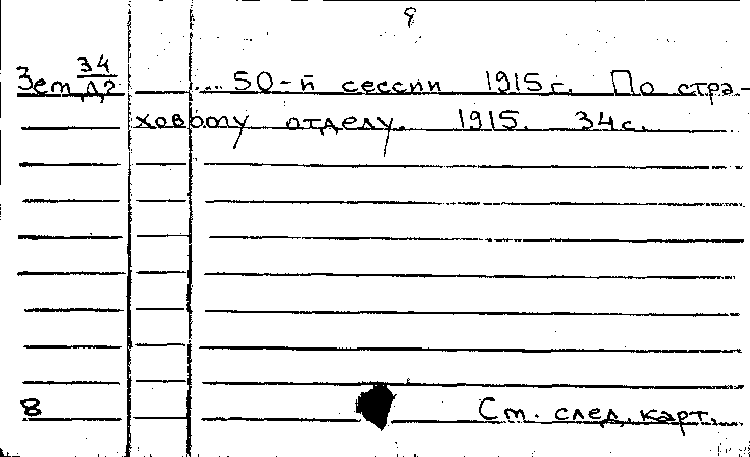 9
Зем 34/Д2 ... 50-й сессии 1915 г. По стра-
ховому отделу. 1915. 34 с.
8 См. след. карт.